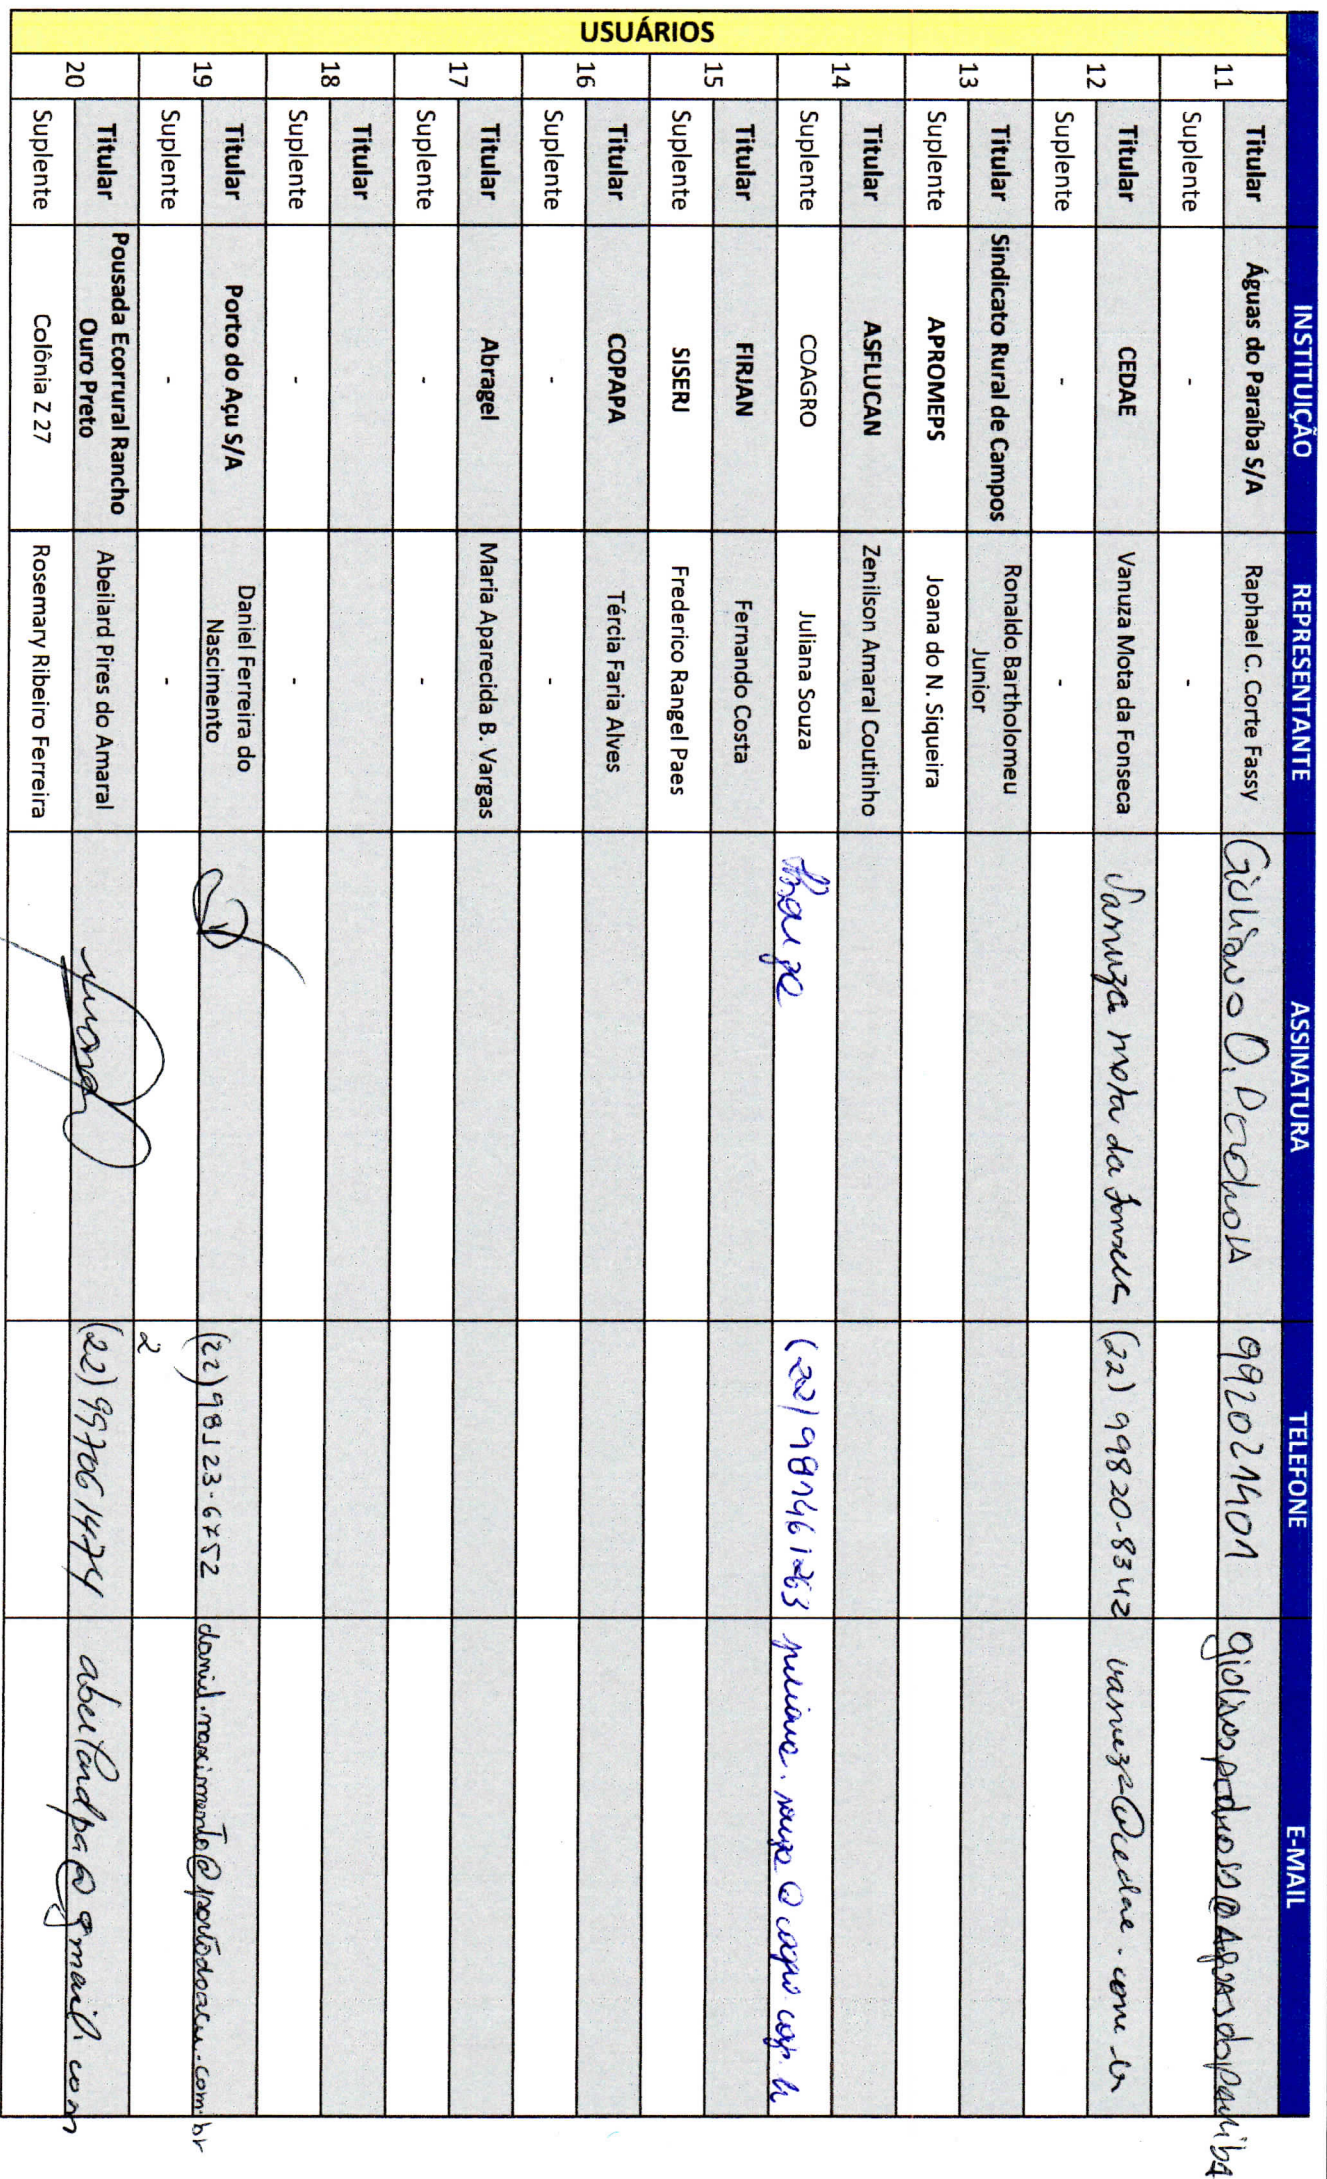 INSTITUIÇÃO REPRESENTANTE ASSINATURA TELEFONE E-MAIL
USUÁRIOS
11 Titular Águas do Paraíba S/A Raphael C. Corte Fassy Giuliano O. 992021401
Suplente - -
12 Titular CEDAE Vanuza Mota da Fonseca Vanuza mota da Fonseca (22) 99820-8342
Suplente - -
13 Titular Sindicato Rural de Campos Ronaldo Bartholomeu
Junior
Suplente APROMEPS Joana do N. Siqueira
14 Titular ASFLUCAN Zenilson Amaral Coutinho
Suplente COAGRO Juliana Souza Souza
15 Titular FIRJAN Fernando Costa
Suplente SISERJ Frederico Rangel Paes
16 Titular COPAPA Tércia Faria Alves
Suplente - -
17 Titular Abragel Maria Aparecida B. Vargas
Suplente -
18 Titular
Suplente - -
19 Titular Porto do Açu S/A Daniel Ferreira do
Nascimento (22) 98123-6752 daniel.nascimento@portodoacu.com.br
Suplente - - 2
20 Titular Pousada Ecorrural Rancho
Ouro Preto Abeilard Pires do Amaral (22) 997061474 abeilardpa@gmail.com
Suplente Colônia Z 27 Rosemary Ribeiro Ferreira